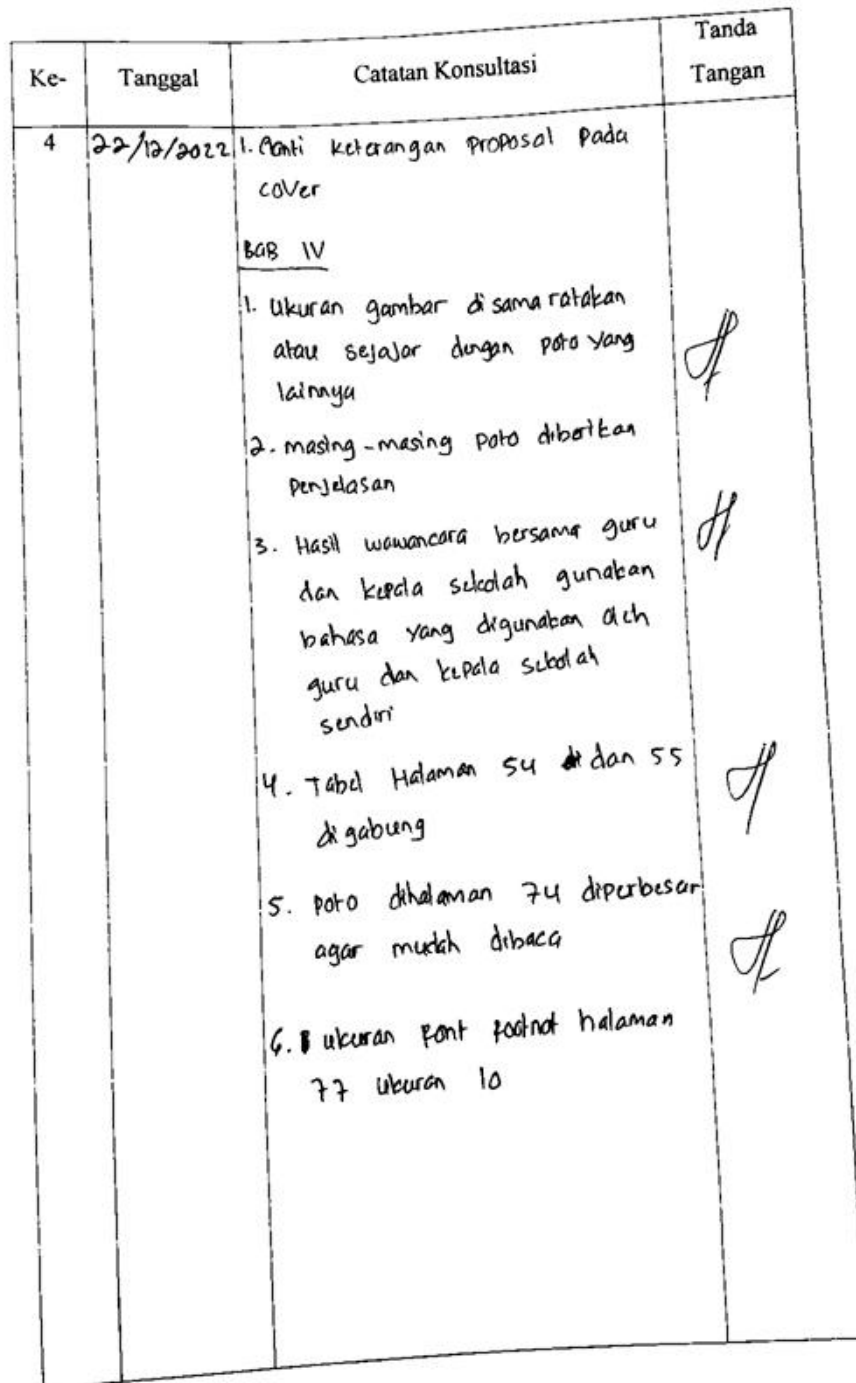 Ke- Tanggal Catatan Konsultasi Tanda Tangan
4 22/12/2022 1. Ganti keterangan proposal pada
cover
BAB IV
1. Ukuran gambar di sama ratakan
atau sejajar dengan poto yang
lainnya
2. masing-masing poto diberikan
penjelasan
3. Hasil wawancara bersama guru
dan kepala sekolah gunakan
bahasa yang digunakan oleh
guru dan kepala sekolah
sendiri
4. Tabel Halaman 54 dan 55
di gabung
5. poto dihalaman 74 diperbesar
agar mudah dibaca
6. ukuran font footnot halaman
77 ukuran 10